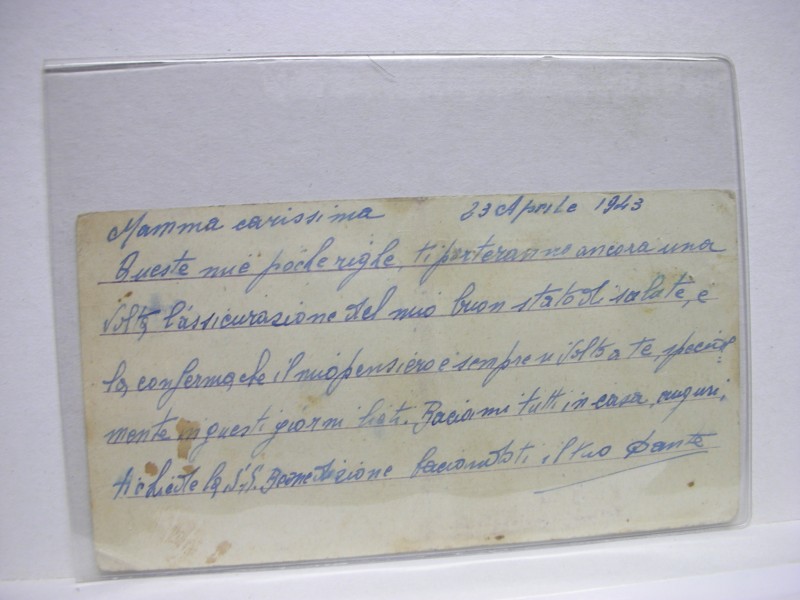 Mamma carissima 23 Aprile 1943
Queste mie poche righe, ti porteranno ancora una
volta, l'assicurazione del mio buon stato di salute, e
la conferma, che il mio pensiero è sempre rivolto a te special=
mente in questi giorni lieti. Baciami tutti in casa, auguri,
ti chiedo la S.S. Benedizione baciandoti il tuo Dante